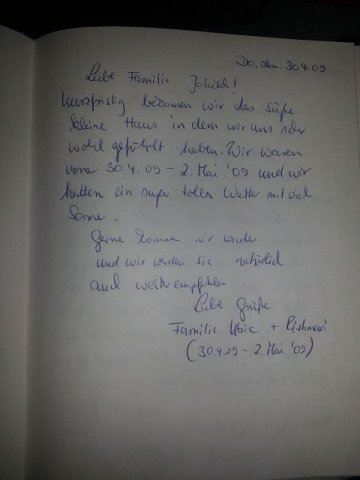 Do, den. 30.4.09
Liebe Familie
kurzfristig bekamen wir das süße
kleine Haus in dem wir uns sehr
wohl gefühlt haben. Wir waren
vom 30.4.09 – 2. Mai '09 und wir
hatten ein super tolles Wetter mit viel
Sonne.
Gerne kommen wir wieder
und wir werden sie natürlich
auch weiterempfehlen
Liebe Grüße
Familie +
(30.4.09 – 2. Mai. '09)